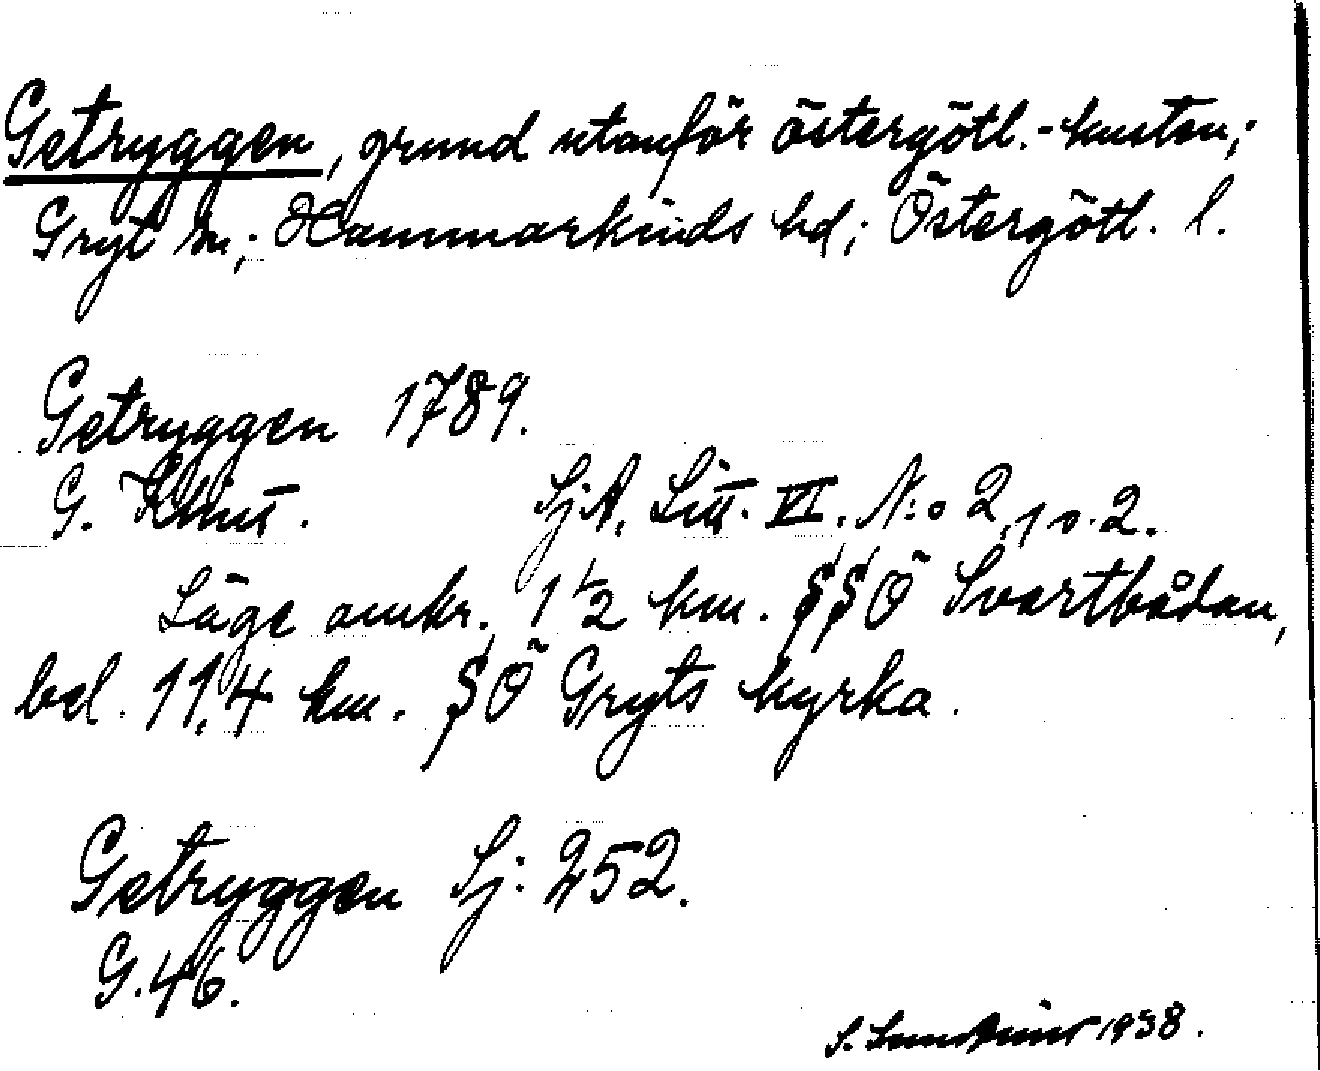 Getryggen, grund utanför östergötl.-kusten;
Gryt sn; Hammarkinds hd; Östergötl. l.
Getryggen 1789.
G. Klint. SjA. Litt. VI. N:o 2, 1 o. 2.
Läge omkr. 1 1/2 km. SSÖ Svartbådan,
bel. 11,4 km. SÖ Gryts kyrka.
Getryggen Sj: 252.
G. 46.
S. 1938.